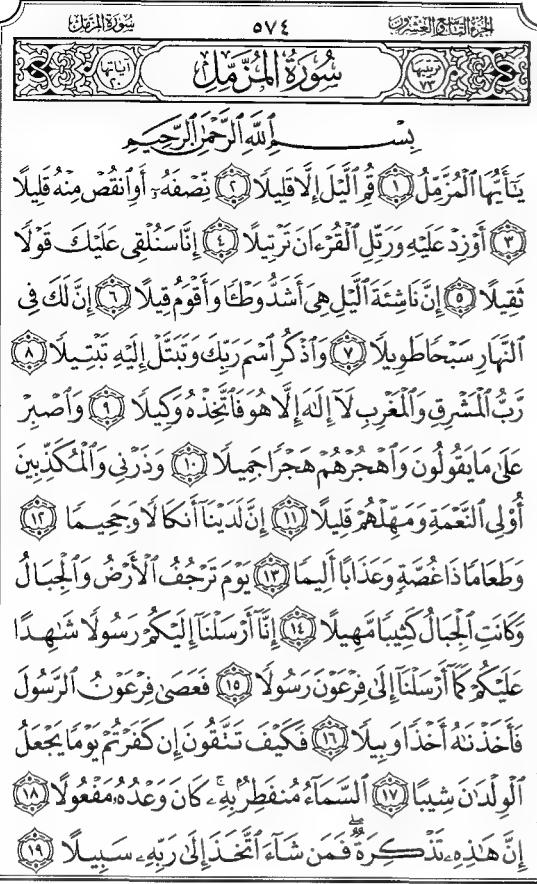 الجزء التاسع والعشرون ٥٧٤ سورة المزمل
ترتيبها ٧٣ سُورَةُ المُزَّمِّلِ آياتها ٢٠
بِسْمِ ٱللَّهِ ٱلرَّحْمَٰنِ ٱلرَّحِيمِ
يَٰٓأَيُّهَا ٱلْمُزَّمِّلُ ١ قُمِ ٱلَّيْلَ إِلَّا قَلِيلًا ٢ نِّصْفَهُۥٓ أَوِ ٱنقُصْ مِنْهُ قَلِيلًا
٣ أَوْ زِدْ عَلَيْهِ وَرَتِّلِ ٱلْقُرْءَانَ تَرْتِيلًا ٤ إِنَّا سَنُلْقِى عَلَيْكَ قَوْلًا
ثَقِيلًا ٥ إِنَّ نَاشِئَةَ ٱلَّيْلِ هِىَ أَشَدُّ وَطْـًٔا وَأَقْوَمُ قِيلًا ٦ إِنَّ لَكَ فِى
ٱلنَّهَارِ سَبْحًا طَوِيلًا ٧ وَٱذْكُرِ ٱسْمَ رَبِّكَ وَتَبَتَّلْ إِلَيْهِ تَبْتِيلًا ٨
رَّبُّ ٱلْمَشْرِقِ وَٱلْمَغْرِبِ لَآ إِلَٰهَ إِلَّا هُوَ فَٱتَّخِذْهُ وَكِيلًا ٩ وَٱصْبِرْ
عَلَىٰ مَا يَقُولُونَ وَٱهْجُرْهُمْ هَجْرًا جَمِيلًا ١٠ وَذَرْنِى وَٱلْمُكَذِّبِينَ
أُو۟لِى ٱلنَّعْمَةِ وَمَهِّلْهُمْ قَلِيلًا ١١ إِنَّ لَدَيْنَآ أَنكَالًا وَجَحِيمًا ١٢
وَطَعَامًا ذَا غُصَّةٍ وَعَذَابًا أَلِيمًا ١٣ يَوْمَ تَرْجُفُ ٱلْأَرْضُ وَٱلْجِبَالُ
وَكَانَتِ ٱلْجِبَالُ كَثِيبًا مَّهِيلًا ١٤ إِنَّآ أَرْسَلْنَآ إِلَيْكُمْ رَسُولًا شَٰهِدًا
عَلَيْكُمْ كَمَآ أَرْسَلْنَآ إِلَىٰ فِرْعَوْنَ رَسُولًا ١٥ فَعَصَىٰ فِرْعَوْنُ ٱلرَّسُولَ
فَأَخَذْنَٰهُ أَخْذًا وَبِيلًا ١٦ فَكَيْفَ تَتَّقُونَ إِن كَفَرْتُمْ يَوْمًا يَجْعَلُ
ٱلْوِلْدَٰنَ شِيبًا ١٧ ٱلسَّمَآءُ مُنفَطِرٌۢ بِهِۦ ۚ كَانَ وَعْدُهُۥ مَفْعُولًا ١٨
إِنَّ هَٰذِهِۦ تَذْكِرَةٌ ۖ فَمَن شَآءَ ٱتَّخَذَ إِلَىٰ رَبِّهِۦ سَبِيلًا ١٩